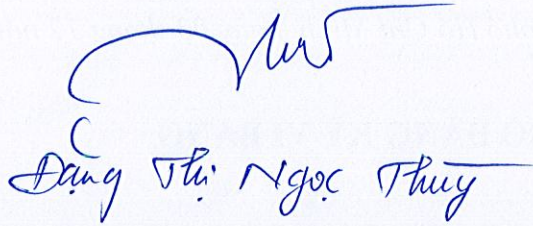 Đặng Thị Ngọc Thuỳ